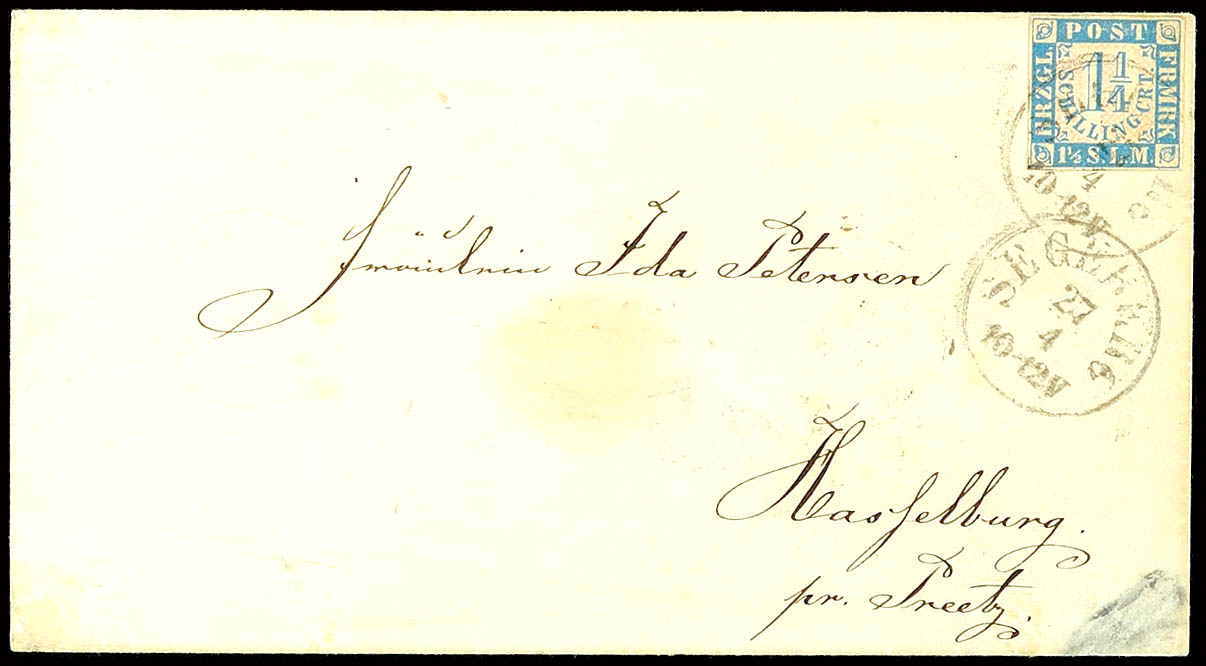 POST
HRZGL.
FRMRK
1 1/4
SCHILLING CRT.
1¼ S. L. M.
4
10-12V
Fräulein Ida Petersen
SEGEBERG
27
4
10-12V
Hasselburg.
pr. Preetz.